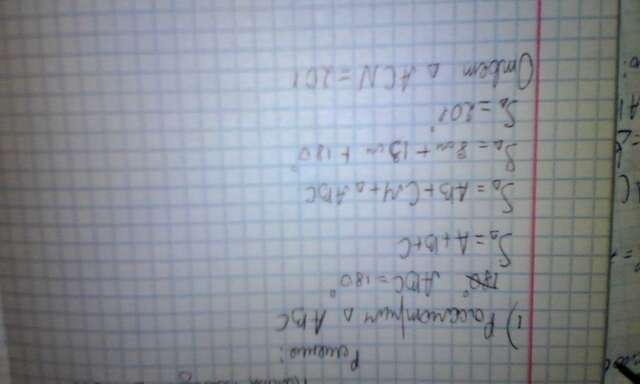 Решение:
1) Рассмотрим △ ABC
180° ABC = 180°
S△ = A + B + C
S△ = AB + CM + △ ABC
S△ = 8 см + 13 см + 180°
S△ = 201
Ответ △ ACN = 201